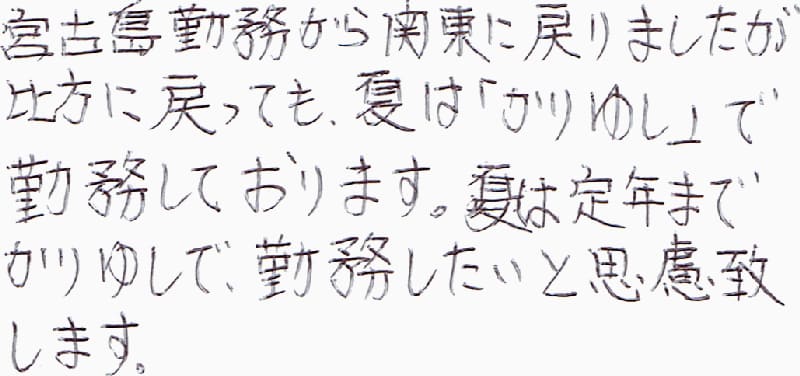 宮古島勤務から関東に戻りましたが
比方に戻っても、夏は「かりゆし」で
勤務しております。夏は定年まで
かりゆしで、勤務したいと思慮致
します。